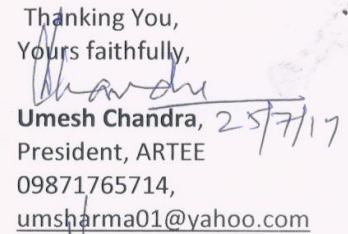 Thanking You,
Yours faithfully,
Chandra
Umesh Chandra, 25/7/17
President, ARTEE
09871765714,
umsharma01@yahoo.com